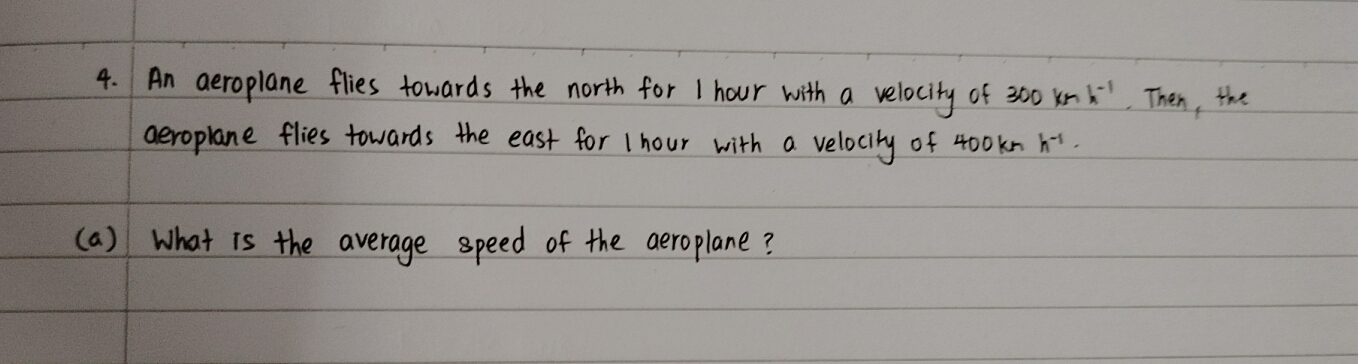 4. An aeroplane flies towards the north for 1 hour with a velocity of 300 km h⁻¹. Then, the
aeroplane flies towards the east for 1 hour with a velocity of 400 km h⁻¹.
(a) What is the average speed of the aeroplane?